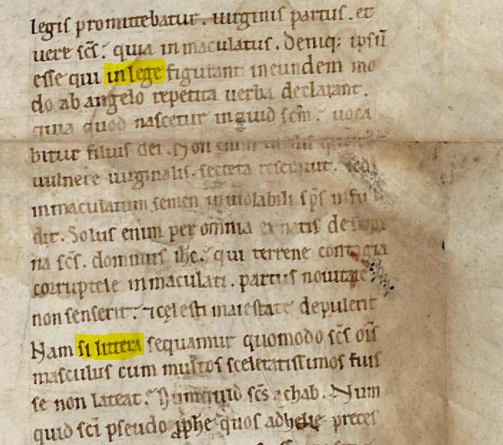 legis promittebatur. uirginis partus. et
uere scs. quia inmaculatus. Deniq; ipsu
esse qui in lege figurant in eundem mo
do ab angelo repetita uerba declarant.
quia quod nascetur inquid scm. uoca
bitur filius dei. Non enim
uulnere uirginalis. secreta reserauit. sed
inmaculatum semen inuiolabili sps
dit. Solus enim per omnia ex natis de
na scs. dominus ihc. qui terrene contagia
corruptele inmaculati. partus nouitate
non senserit. & celesti maiestate depulerit
Nam si littera sequamur quomodo scs ois
masculus cum multos sceleratissimos fuis
se non lateat. Numquid scs achab. Num
quid sci pseudo pphe quos ad helie preces